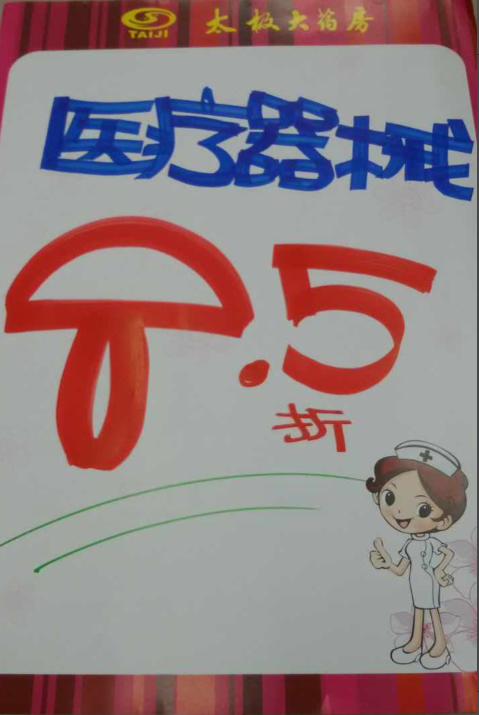 TAIJI 太极大药房
医疗器械
.5
折